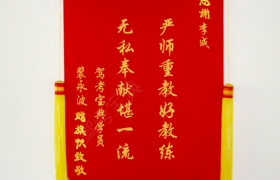 谢李成
严师重教好教练
无私奉献堪一流
驾考宝典学员
裴永波 赠旗帜致敬